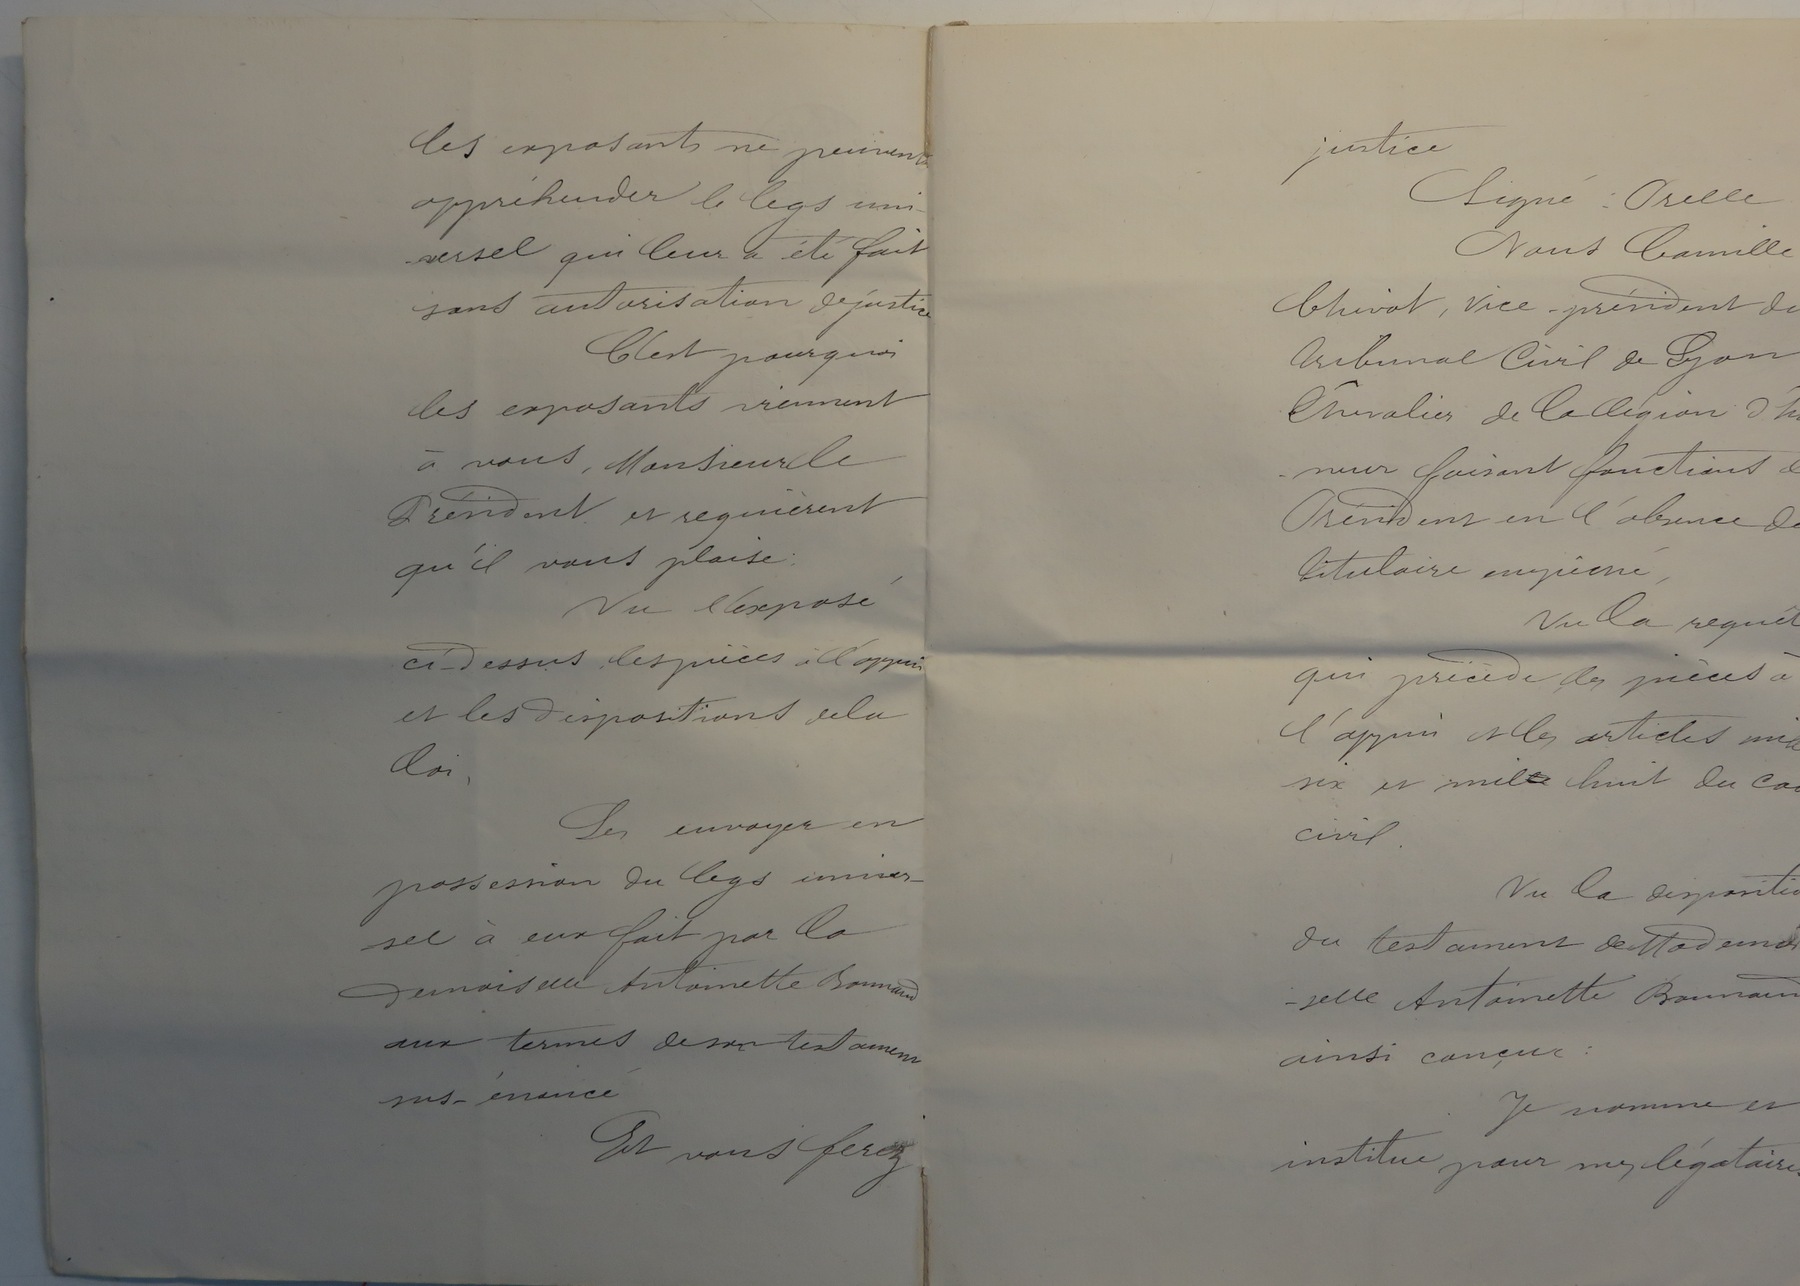 les exposants ne peuvent
appréhender le legs uni-
-versel qui leur a été fait
sans autorisation de justice
C'est pourquoi
les exposants viennent
à vous, Monsieur le
Président et requièrent
qu'il vous plaise:
Vu l'exposé
ci-dessus les pièces à l'appui
et les dispositions de la
loi,
Les envoyer en
possession du legs univer-
sel à eux fait par la
Demoiselle Antoinette Bonnand
aux termes de son testament
sus-énoncé
Et vous ferez
justice
Signé : Orelle
Nous Camille
Chivot, Vice-président du
tribunal Civil de Lyon
Chevalier de la légion d'ho
-neur faisant fonctions d
Président en l'absence de
titulaire empêché,
Vu la requêt
qui précède les pièces à
l'appui et les articles mil
six et mille huit du co
civil.
Vu la dispositio
du testament de Mademoi
-selle Antoinette Bonnand
ainsi conçue :
Je nomme et
institue pour mes légataires